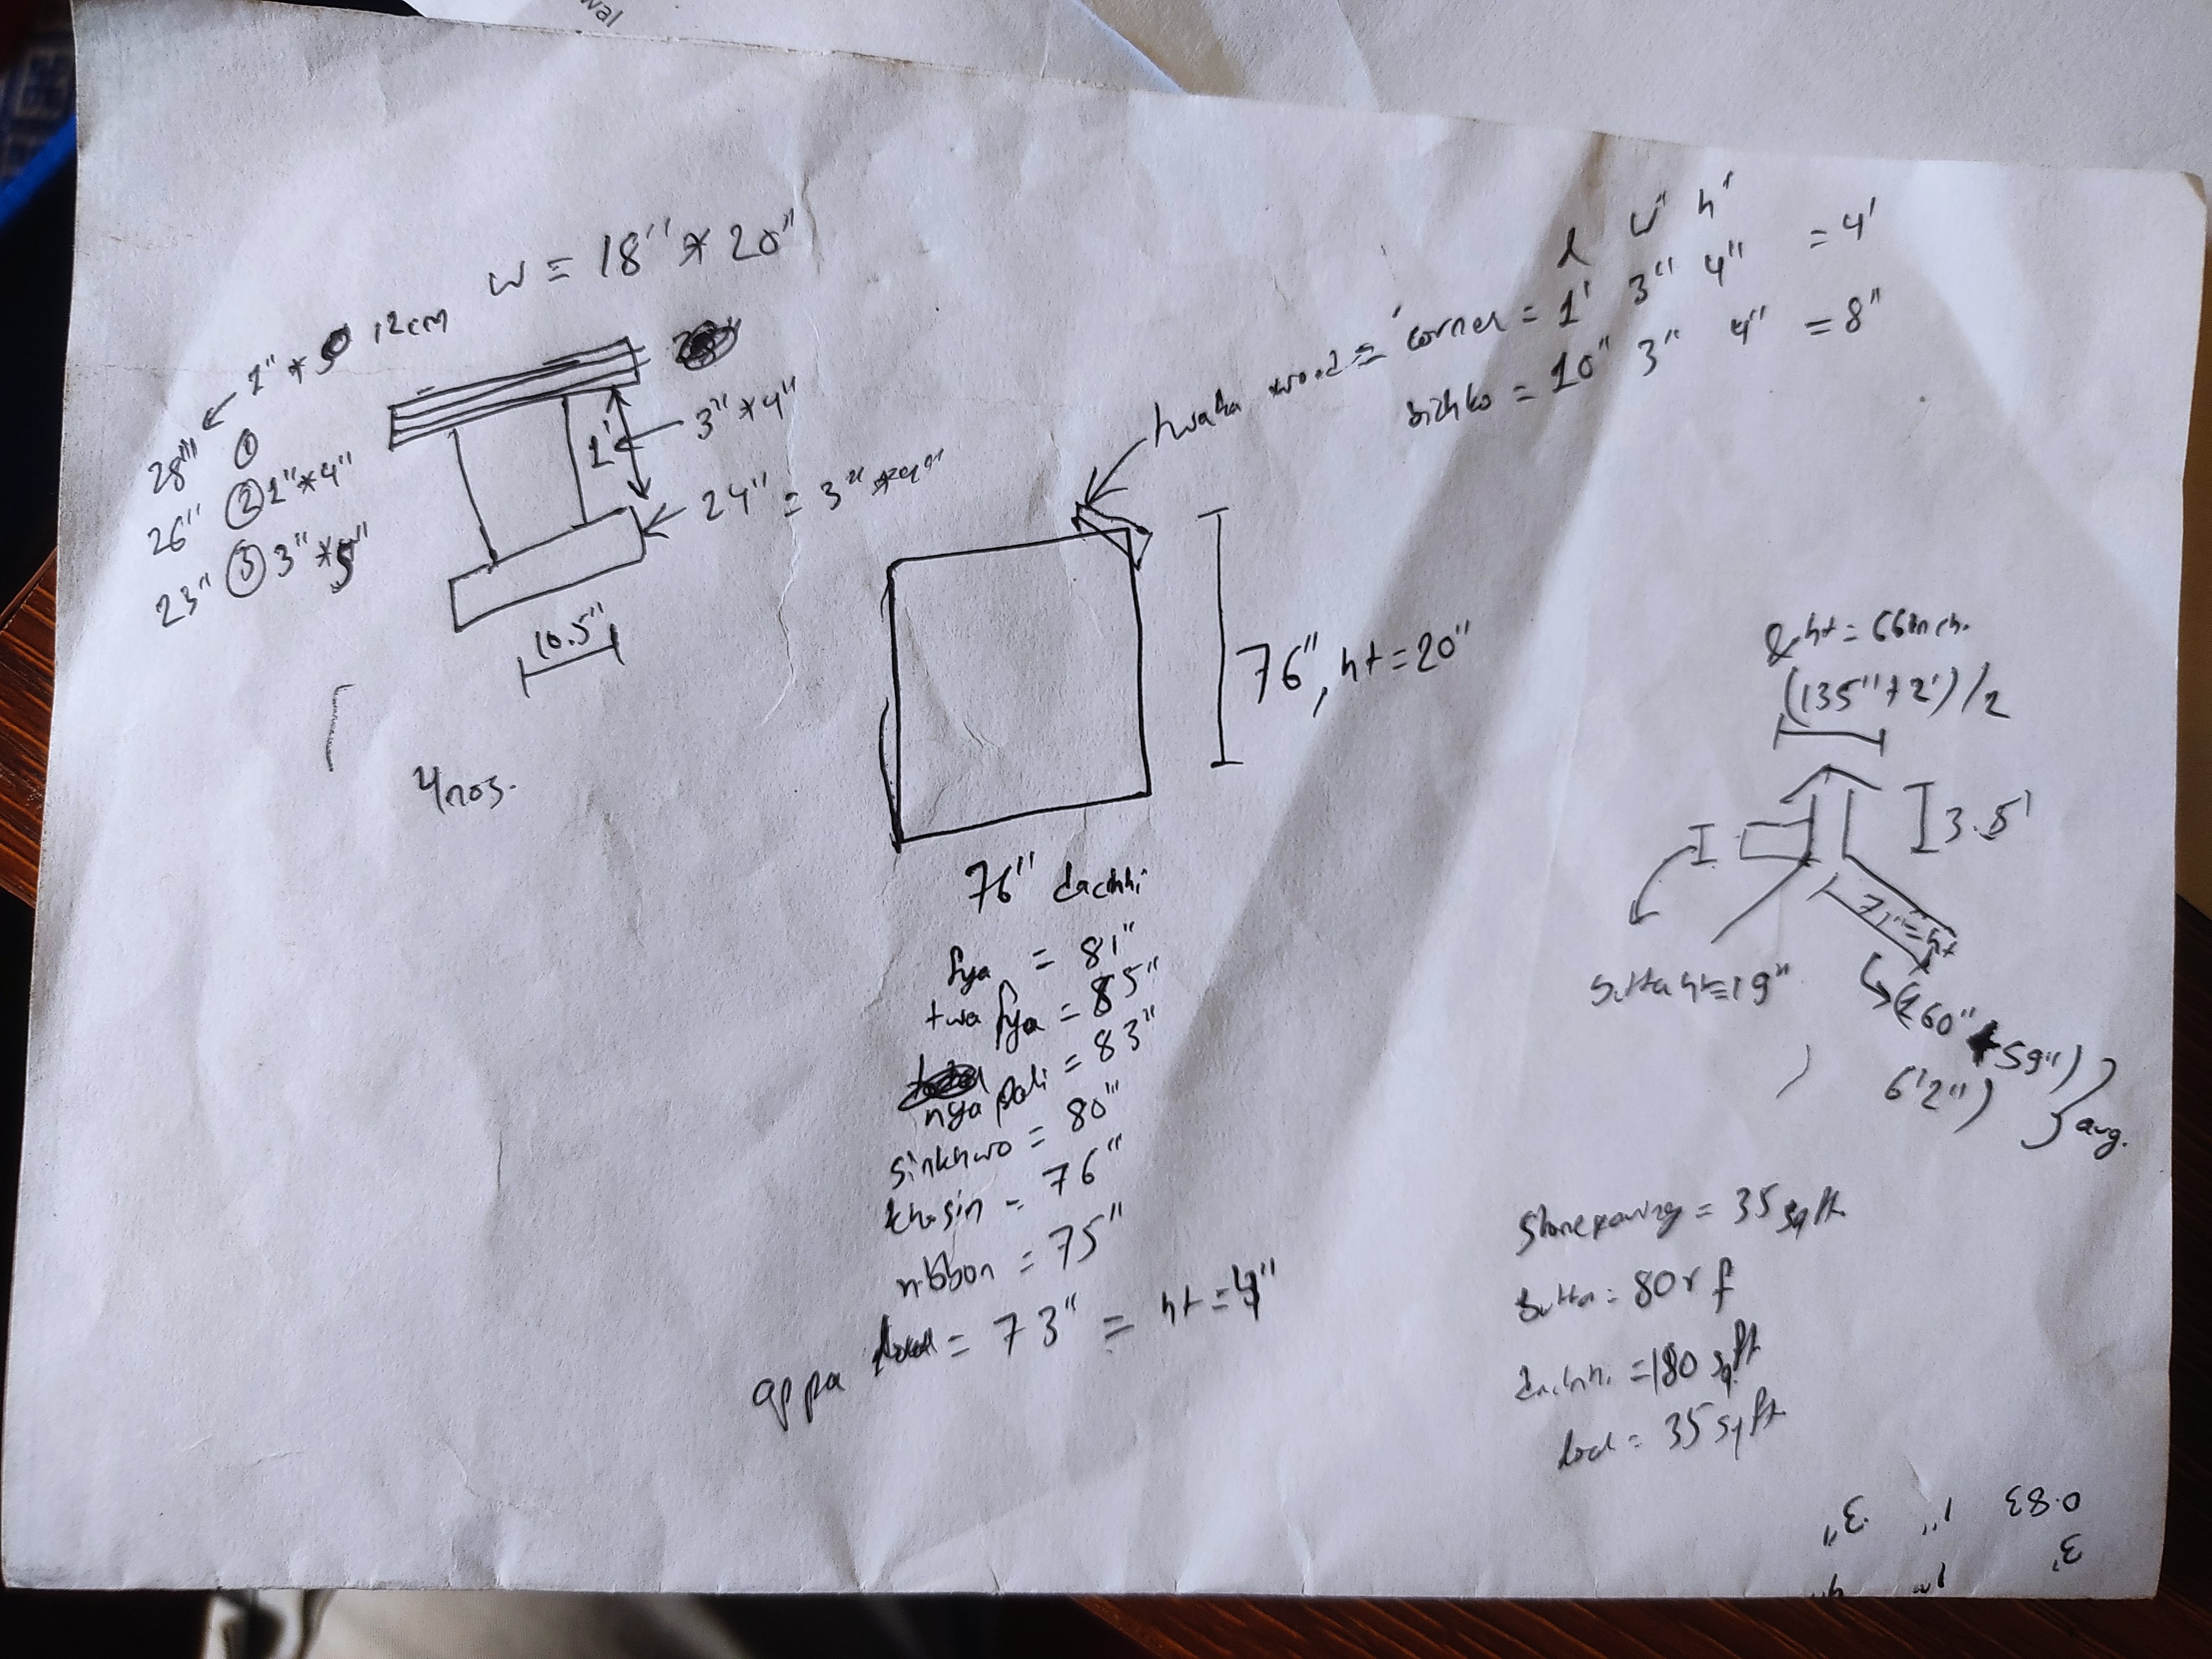 wal
w = 18" * 20"
28" ← 1" * 12cm
①
26" ② 1" * 4"
23" ③ 3" * 5"
1'
3" * 4"
24" = 3" * 4"
10.5"
4nos.
l w" h"
hwaka wood = corner = 1' 3" 4" = 4'
bichko = 10" 3" 4" = 8"
76", ht = 20"
76" dachhi
fya = 81"
twa fya = 85"
nya pali = 83"
sinkhwo = 80"
khasin = 76"
ribbon = 75"
appa = 73" = ht = 4"
& ht = 66inch.
(135" + 2')/2
3.5'
71" = ht
butta ht = 19"
(260" + 59")
6'2")
} avg.
Stone paving = 35 sq ft
butta = 80 r f
dachhi = 180 sq ft
= 35 sq ft
0.83 1" 3"
3' 1" 4"